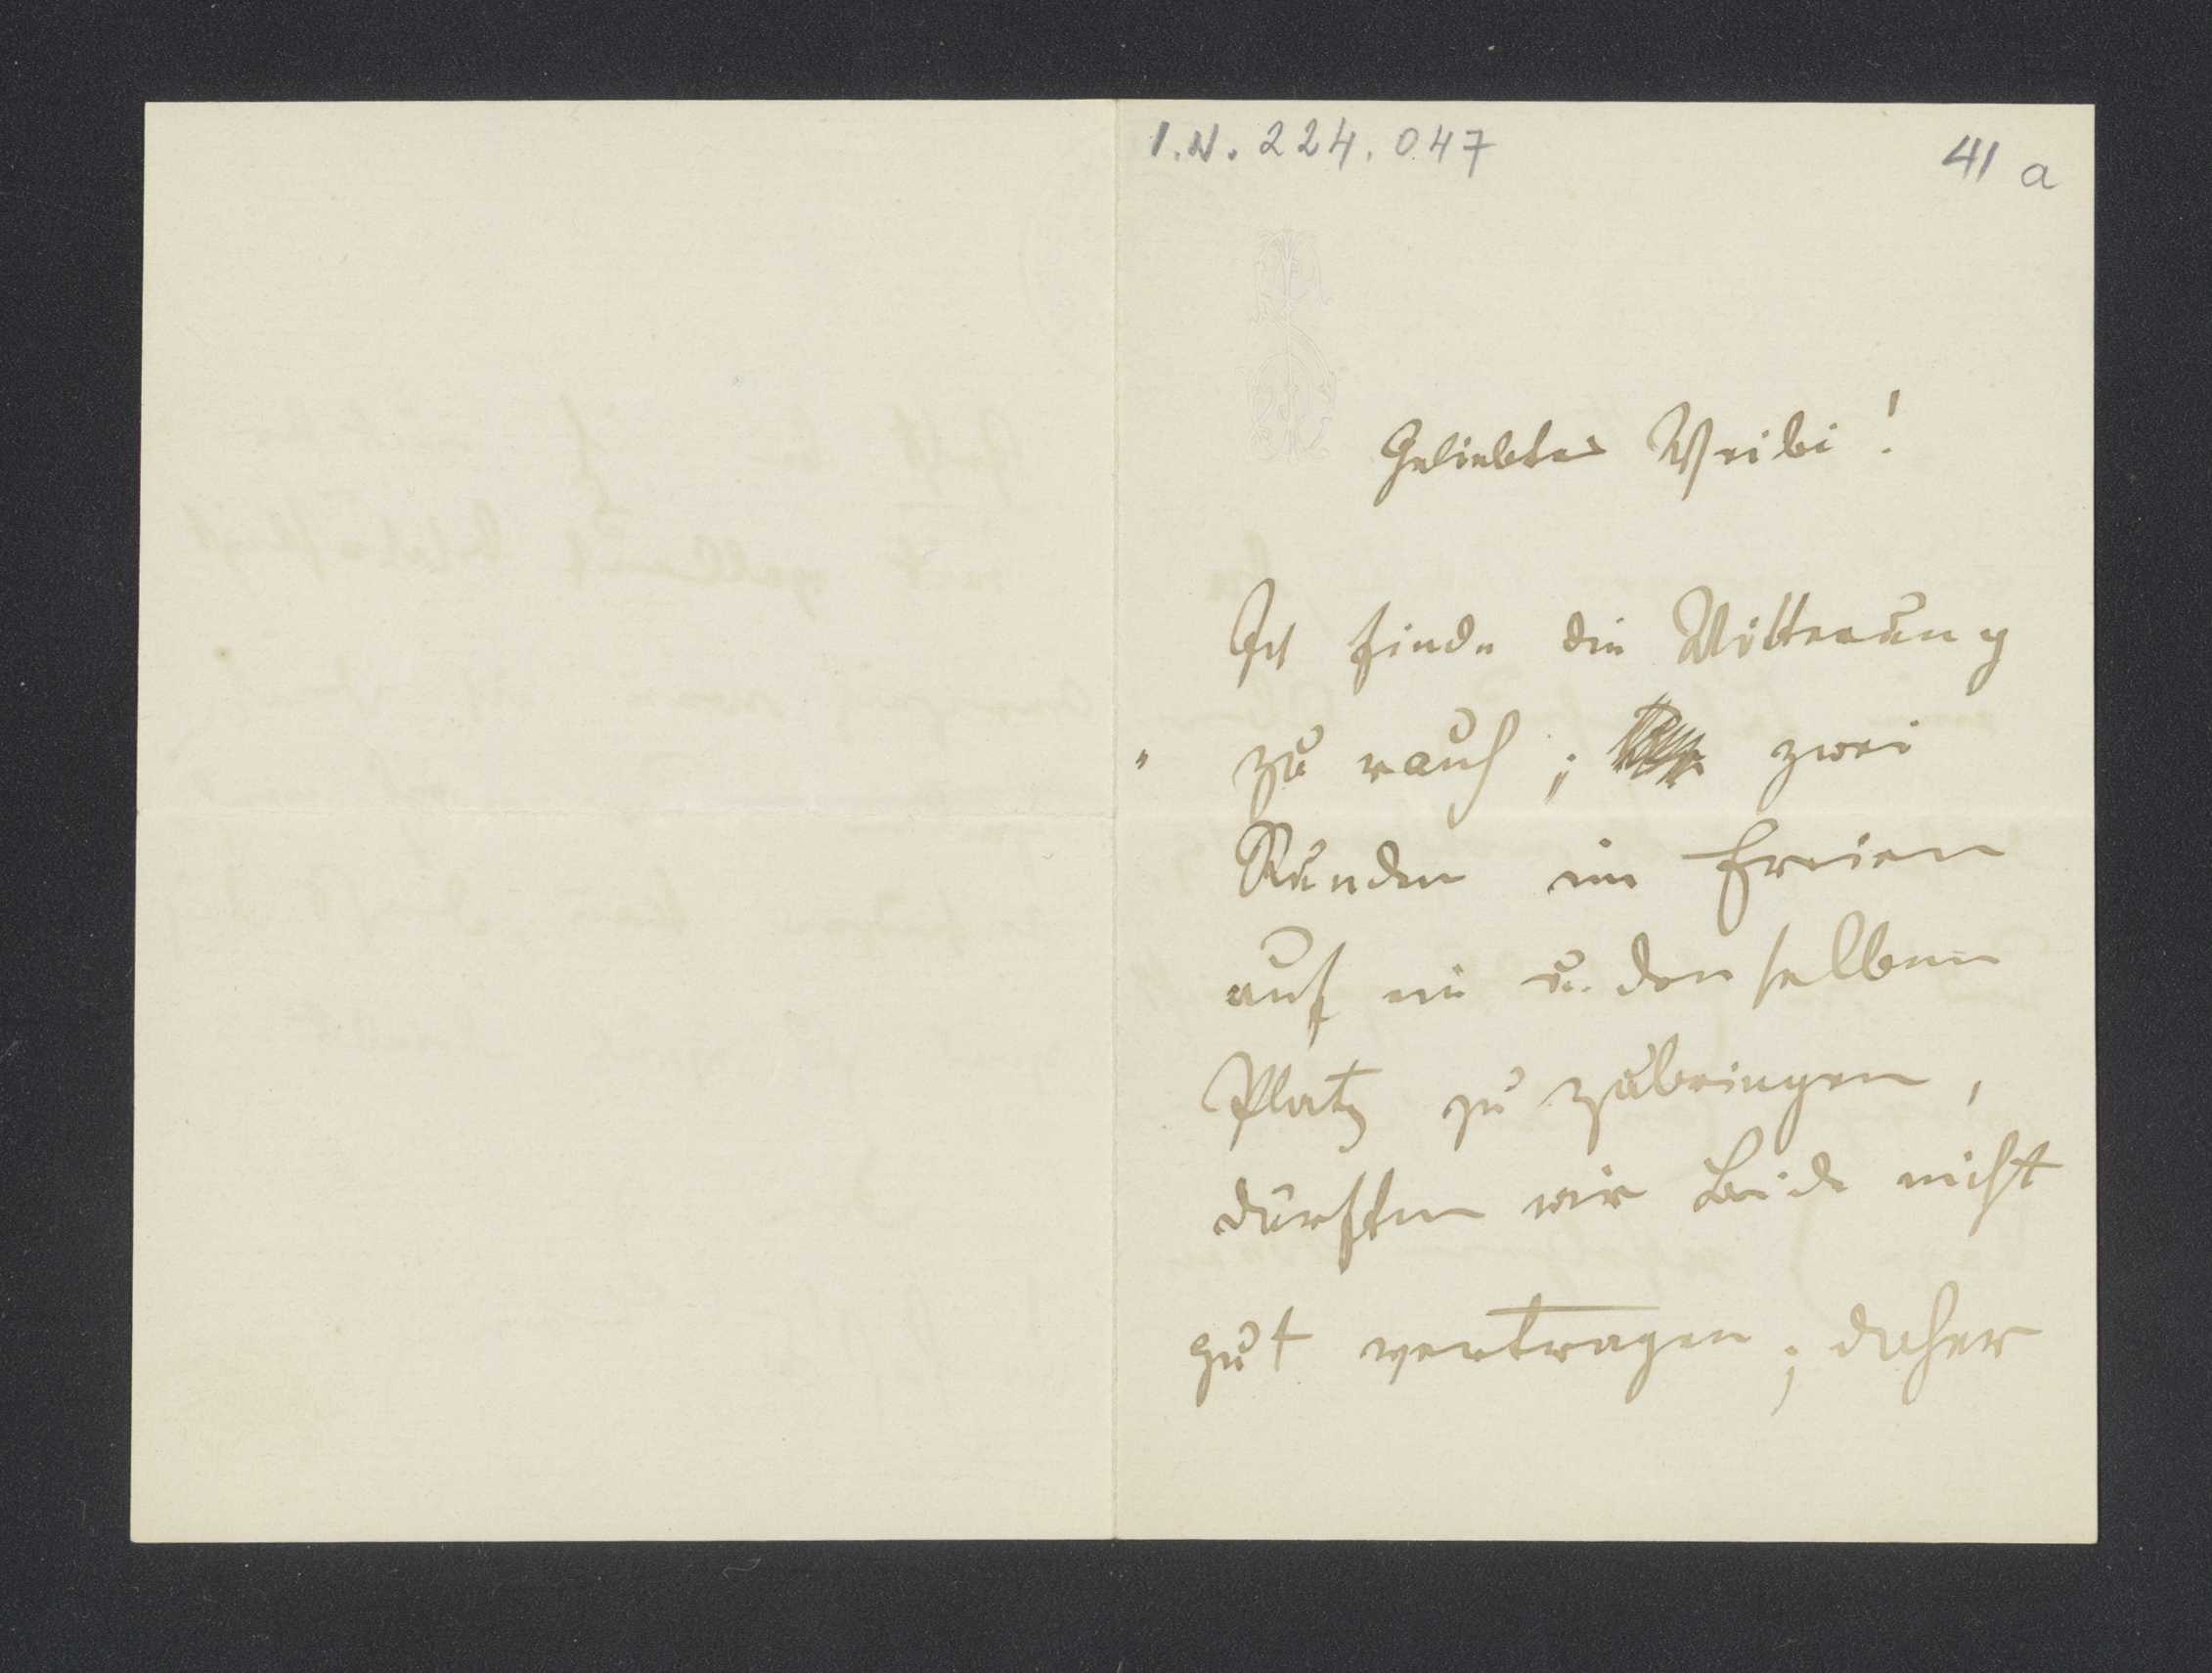 I.N. 224.047
41 a
Geliebtes Weibi!
Ich finde die Witterung
zu rauh; zwei
Stunden im Freien
auf ein u. denselben
Platz zu zubringen,
dürften wir Beide nicht
gut vertragen; daher